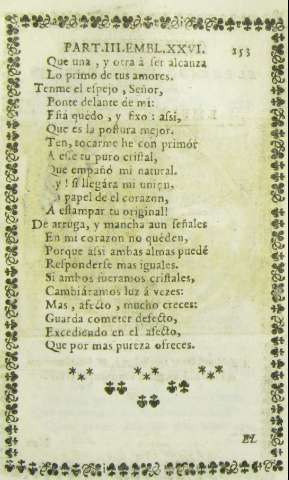 PART.III.EMBL.XXVI. 253
Que una, y otra á ser alcanza
Lo primo de tus amores.
Tenme el espejo, Señor,
Ponte delante de mi:
Está quedo, y fixo: assi,
Que es la postura mejor.
Ten, tocarme he con primór
A esse tu puro cristal,
Que empañó mi natural.
y! si llegára mi
papel de el corazon,
A estampar tu original!
De arruga, y mancha aun señales
En mi corazon no queden,
Porque assi ambas almas puedē
Responderse mas iguales.
Si ambos fueramos cristales,
Cambiáramos luz á vezes:
Mas, afecto, mucho creces:
Guarda cometer defecto,
Excediendo en el afecto,
Que por mas pureza ofreces.
EL